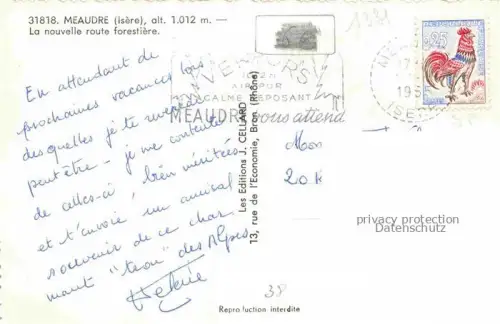 31818. MEAUDRE (isère), alt. 1.012 m. —
La nouvelle route forestière.
En attendant de
prochaines vacances lors
desquelles je te reverrai
peut être - je me contente
de celles-ci, bien méritées
et t'envoie un amical
souvenir de ce char
mant "trou" des Alpes
VERCORS
AIR PUR
CALME REPOSANT
MEAUDRE vous attend
Les Editions J. CELLARD
13, rue de l'Economie, Bron (Rhône)
0,25
ISERE
20 K
privacy protection
Datenschutz
38
Reproduction interdite